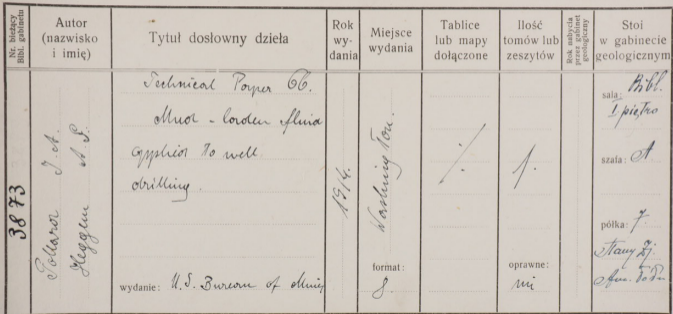 Nr. bieżący
Bibl. gabinetu
Autor
(nazwisko
i imię)
Tytuł dosłowny dzieła
Rok
wy-
dania
Miejsce
wydania
Tablice
lub mapy
dołączone
Ilość
tomów lub
zeszytów
Rok nabycia
przez gabinet
geologiczny
Stoi
w gabinecie
geologicznym
3873
Pollard J. A.
Heggem A. G.
Technical Paper 66.
Mud-laden fluid
applied to well
drilling.
wydanie: U.S. Bureau of Mines
1914.
Washington.
format:
8.
1.
oprawne:
nie
sala: Bibl.
I piętro
szafa: A
półka: 7.
Stany Zj.
Am. Półn.